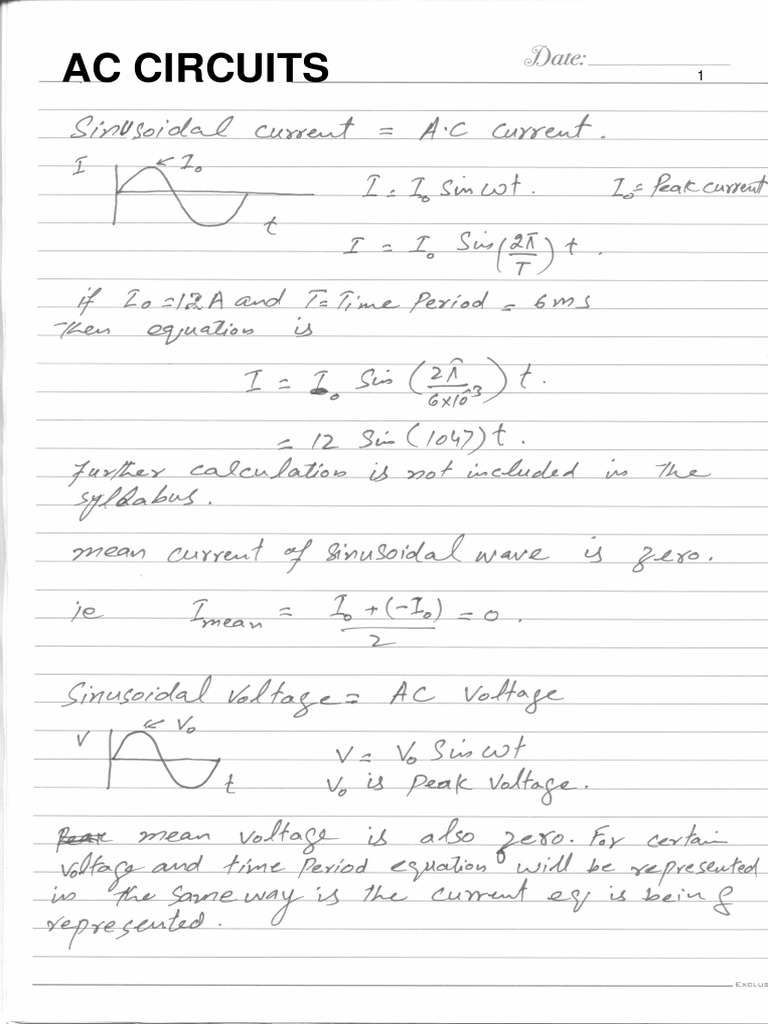 AC CIRCUITS
Date:
1
Sinusoidal current = A.C current.
I
I₀
t
I = I₀ Sin ωt. I₀ = Peak current
I = I₀ Sin(2π/T) t.
if I₀ = 12 A and T = Time Period = 6 ms
Then equation is
I = I₀ Sin (2π/6×10⁻³) t.
= 12 Sin (1047) t.
further calculation is not included in the
syllabus.
mean current of sinusoidal wave is zero.
ie I mean = I₀ + (-I₀)/2 = 0.
Sinusoidal voltage = AC Voltage
V
V₀
t
V = V₀ Sin ωt
V₀ is peak voltage.
mean voltage is also zero. For certain
voltage and time period equation will be represented
in the same way is the current eq is being
represented.
EXCLUS